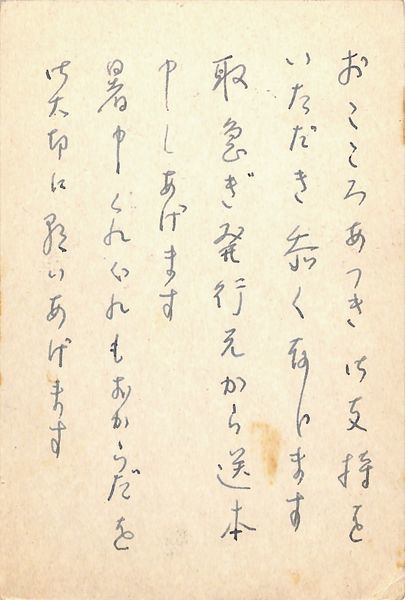 おこころあつき御支持を
いただき忝く存じます
取急ぎ発行元から送本
申しあげます
暑中くれぐれもおからだを
御大切に願いあげます